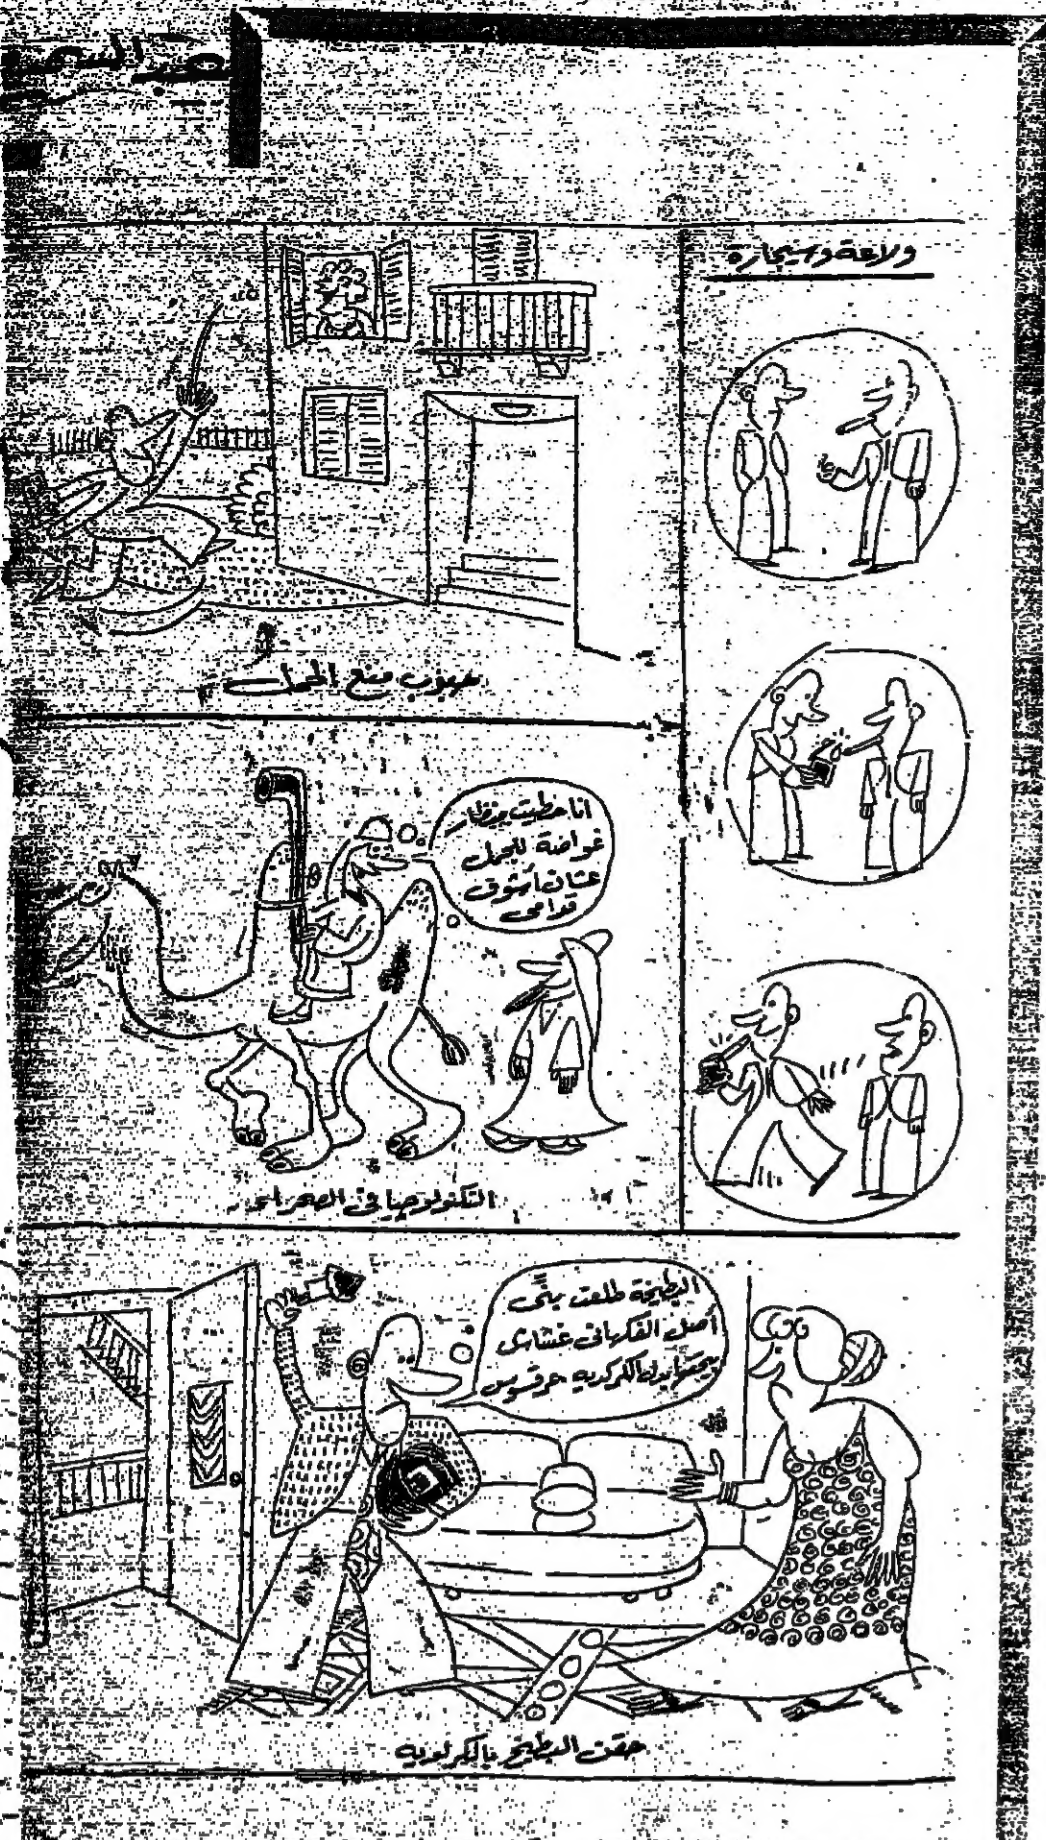 عبد السميع
ولاعة وسيجاره
حبوب منع الحمل
انا حطيت منظار
غواصة للجمل
عشان أشوف
قدامى
التكنولوجيا فى الصحراء
البطيخة طلعت بنّى
أصل الفكهانى غشاش
بيحقنها بدل الكركديه عرقسوس
حقن البطيخ بالكركديه